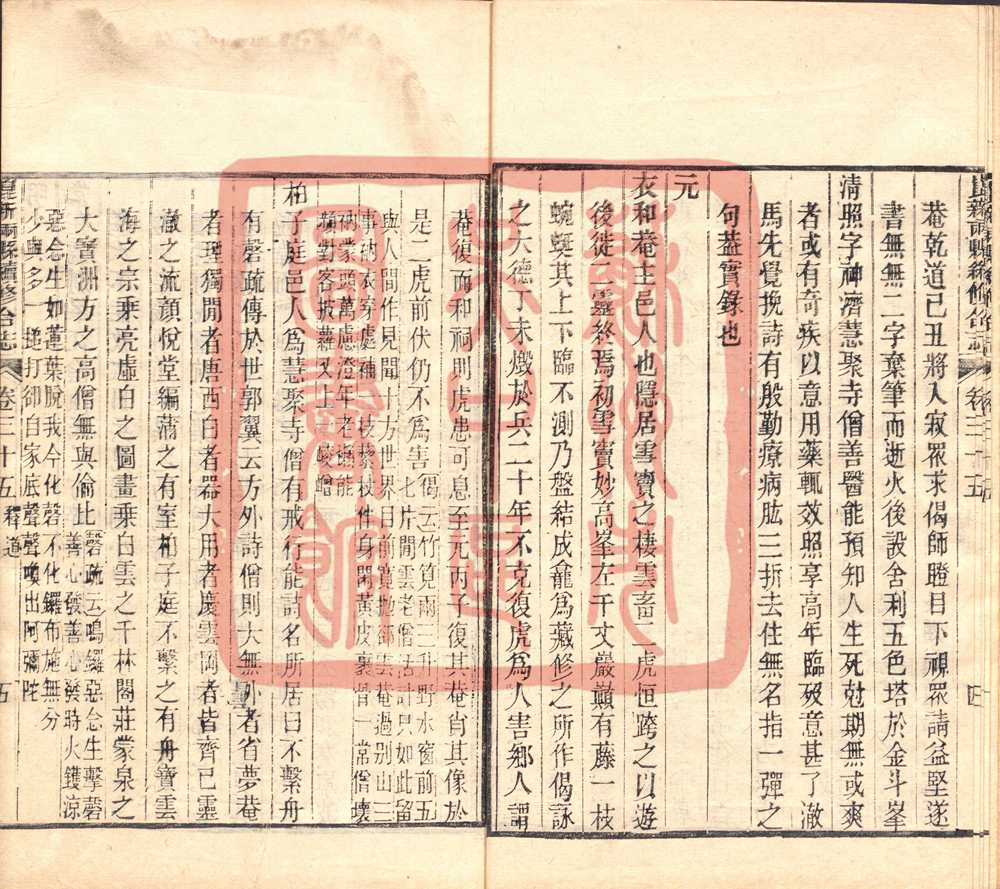 菴乾道己丑將入寂眾求偈師瞪目下視眾請益堅遂
書無無二字棄筆而逝火後設舍利五色塔於金斗峯
清照字神濟慧聚寺僧善醫能預知人生死尅期無或爽
者或有奇疾以意用藥輒效照享高年臨歿意甚了澈
馬先覺挽詩有般勤療病肱三折去住無名指一彈之
句蓋實錄也
元
衣和菴主邑人也隱居雪竇之棲雲畜二虎恒跨之以遊
後徙二靈終焉初雪竇妙高峯左千丈巖巔有藤一枝
蜿蜒其上下臨不測乃盤結成龕爲藏修之所作偈詠
之大德丁未燬於兵二十年不克復虎爲人害鄉人謂
崑新兩縣續修合志
卷三十五
四
菴復而和祠則虎患可息至元丙子復其菴肖其像於
是二虎前伏仍不爲害
偈云竹筧雨三升野水窗前五
七片閒雲老僧活計只如此留
與人間作見聞十方世界目前寬拋卻雲菴過別山三
事衲衣穿處補一枝藜杖件身閒黃皮裹骨一常僧壞
衲蒙頭萬慮澄年老懶能
頻對客披蘿又上一崚嶒
柏子庭邑人爲慧聚寺僧有戒行能詩名所居曰不繫舟
有磬疏傳於世郭翼云方外詩僧則大無外者省夢菴
者理獨閒者唐西白者器大用者慶雲岡者皆齊已靈
澈之流顏悅堂編蒲之有室柏子庭不繫之有舟寶雲
海之宗乘亮虛白之圖畫乘白雲之千林閣莊蒙泉之
大寶洲方之高僧無與倫比
磬疏云鳴鑼惡念生擊磬
善心發善心發時火鑊涼
惡念生如蓮葉脫我今化磬不化鑼布施無分
少與多一搥打卻自家底聲聲喚出阿彌陀
崑新兩縣續修合志
卷三十五
釋道
五